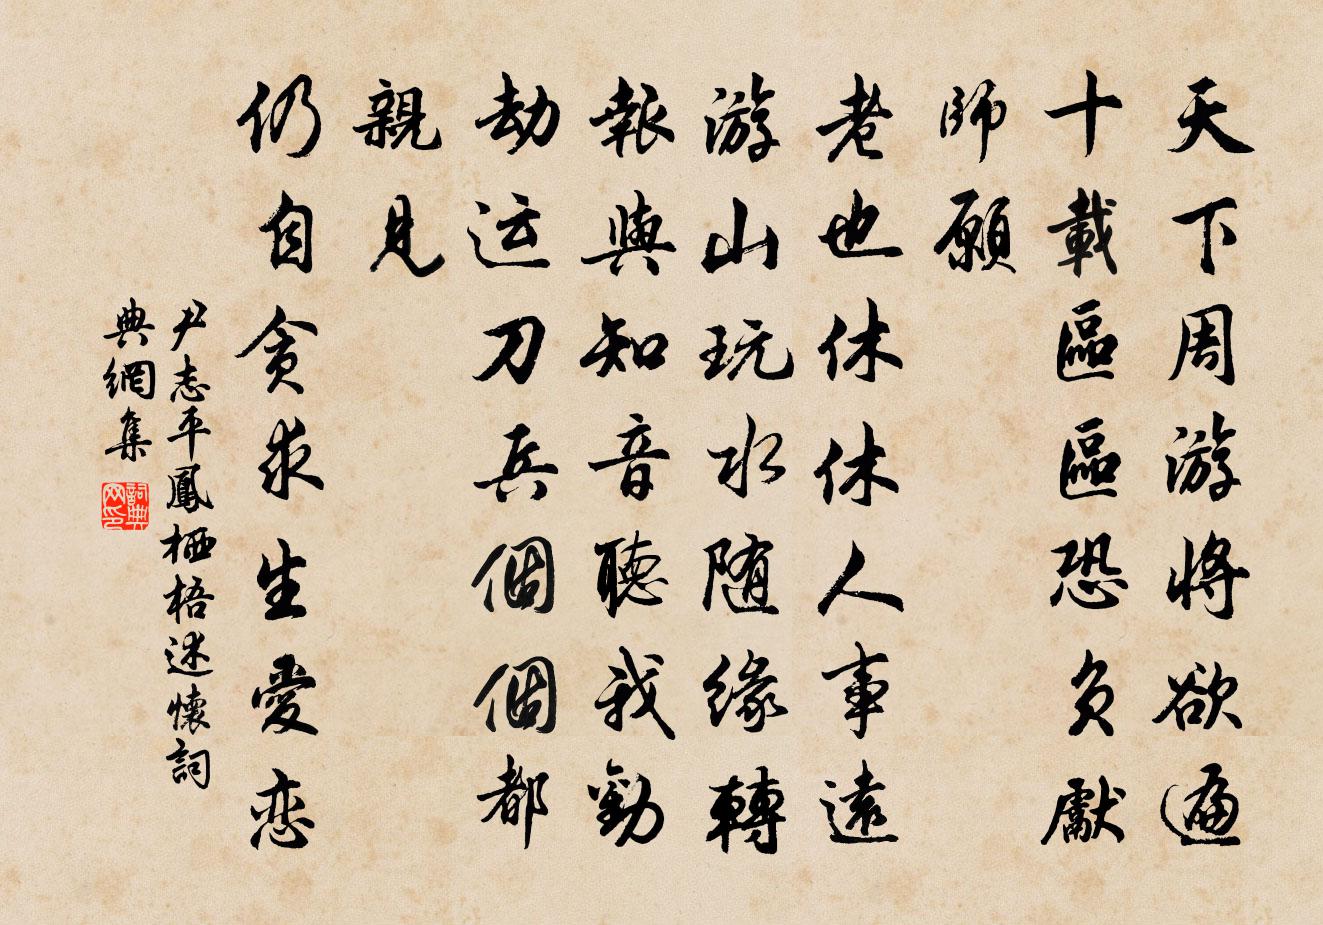 天下周游將欲遍
十載區區恐負獻
師願
老也休休人事遠
游山玩水随緣轉
報與知音聽我勸
劫运刀兵個個都
親見
仍自貪求生愛恋
尹志平鳳栖梧述懷詞
典網集
詞典网印